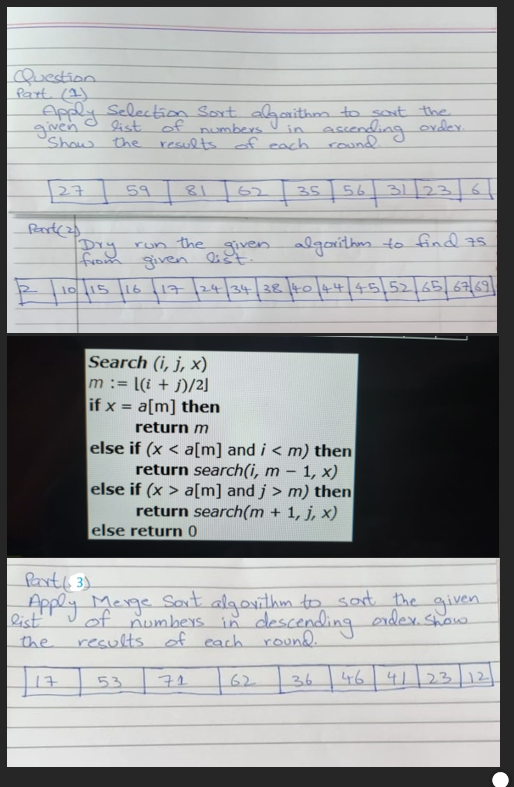 Question
Part (1)
Apply Selection Sort algorithm to sort the
given list of numbers in ascending order.
Show the results of each round.
27 59 81 62 35 56 31 23 6
Part(2)
Dry run the given algorithm to find 75
from given list.
2 10 15 16 17 24 34 38 40 44 45 52 65 67 69
Search (i, j, x)
m := ⌊(i + j)/2⌋
if x = a[m] then
return m
else if (x < a[m] and i < m) then
return search(i, m − 1, x)
else if (x > a[m] and j > m) then
return search(m + 1, j, x)
else return 0
Part(3)
Apply Merge Sort algorithm to sort the given
list of numbers in descending order. Show
the results of each round.
17 53 71 62 36 46 41 23 12